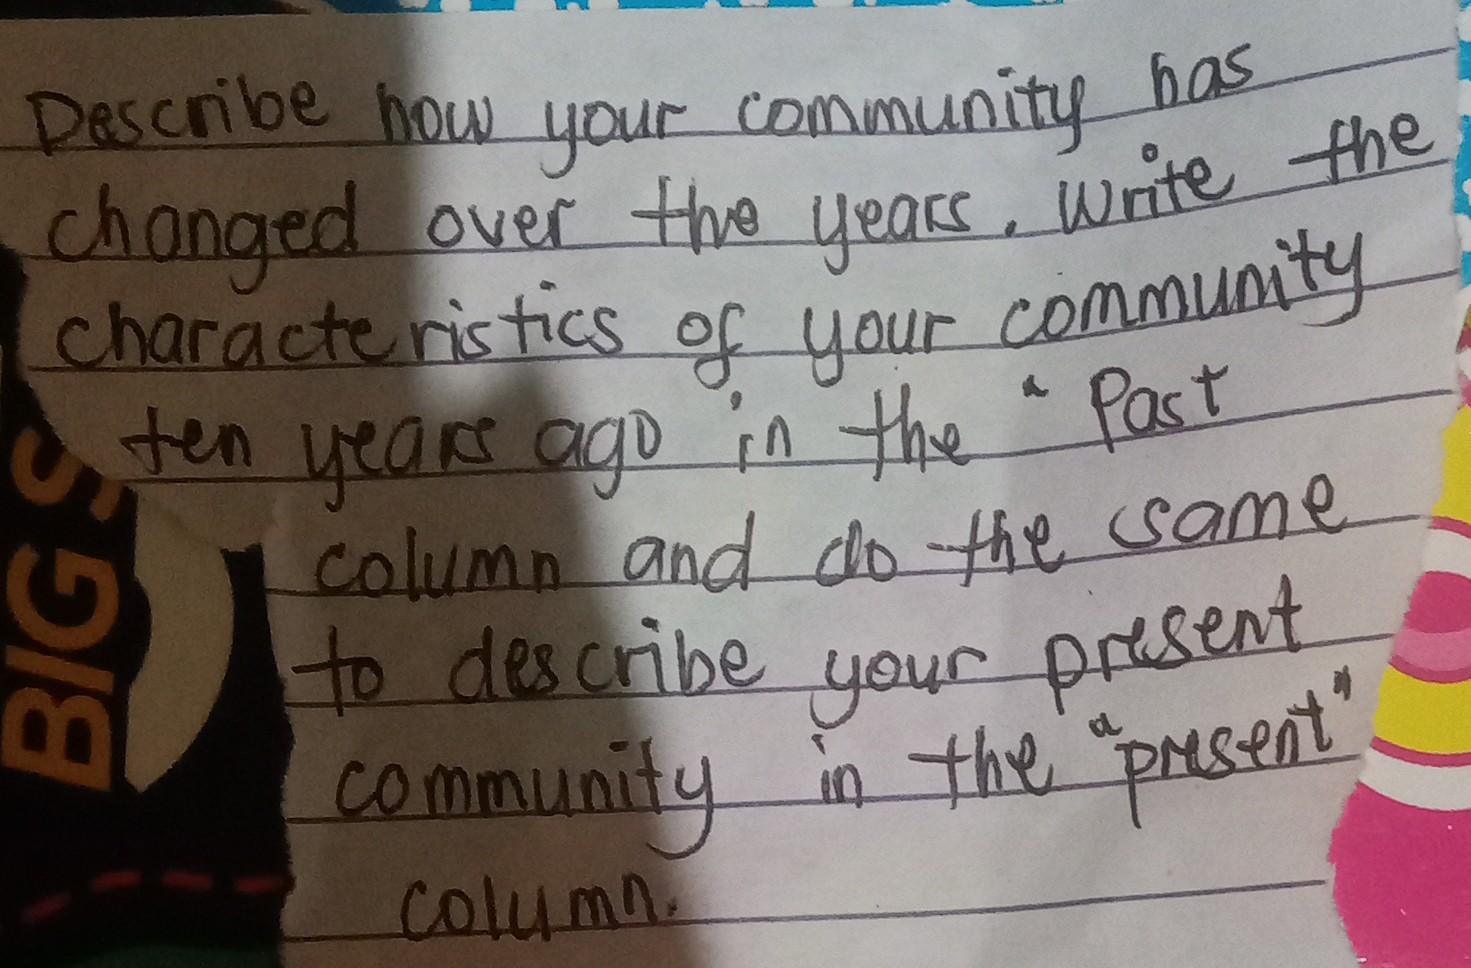 Describe how your community has
changed over the years. Write the
characteristics of your community
ten years ago in the "Past
column and do the same
to describe your present
community in the "present"
column.
BIG S